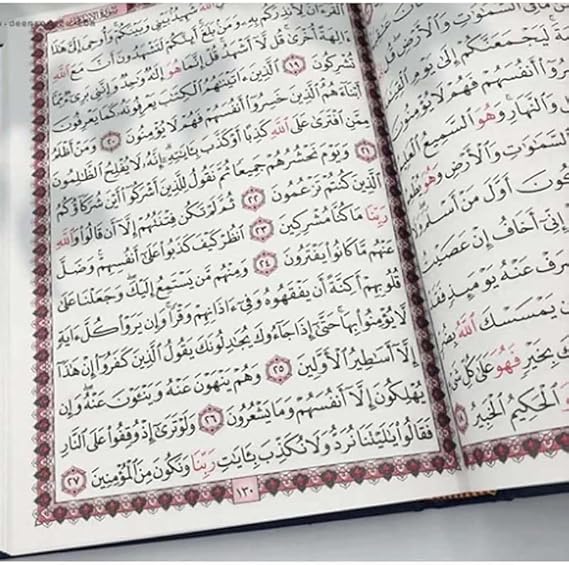 سورة الأنعام
ٱللَّهُ شَهِيدٌۢ بَيْنِي وَبَيْنَكُمْ وَأُوحِيَ إِلَيَّ هَٰذَا
ٱلْقُرْءَانُ لِأُنذِرَكُم بِهِۦ وَمَنۢ بَلَغَ أَئِنَّكُمْ لَتَشْهَدُونَ أَنَّ مَعَ ٱللَّهِ
ءَالِهَةً أُخْرَىٰ قُل لَّآ أَشْهَدُ قُلْ إِنَّمَا هُوَ إِلَٰهٌ وَٰحِدٌ وَإِنَّنِي بَرِيٓءٌ مِّمَّا
تُشْرِكُونَ ١٩ ٱلَّذِينَ ءَاتَيْنَٰهُمُ ٱلْكِتَٰبَ يَعْرِفُونَهُۥ كَمَا يَعْرِفُونَ
أَبْنَآءَهُمُ ٱلَّذِينَ خَسِرُوٓا۟ أَنفُسَهُمْ فَهُمْ لَا يُؤْمِنُونَ ٢٠ وَمَنْ أَظْلَمُ
مِمَّنِ ٱفْتَرَىٰ عَلَى ٱللَّهِ كَذِبًا أَوْ كَذَّبَ بِـَٔايَٰتِهِۦٓ إِنَّهُۥ لَا يُفْلِحُ ٱلظَّٰلِمُونَ
٢١ وَيَوْمَ نَحْشُرُهُمْ جَمِيعًا ثُمَّ نَقُولُ لِلَّذِينَ أَشْرَكُوٓا۟ أَيْنَ شُرَكَآؤُكُمُ
ٱلَّذِينَ كُنتُمْ تَزْعُمُونَ ٢٢ ثُمَّ لَمْ تَكُن فِتْنَتُهُمْ إِلَّآ أَن قَالُوا۟ وَٱللَّهِ
رَبِّنَا مَا كُنَّا مُشْرِكِينَ ٢٣ ٱنظُرْ كَيْفَ كَذَبُوا۟ عَلَىٰٓ أَنفُسِهِمْ وَضَلَّ
عَنْهُم مَّا كَانُوا۟ يَفْتَرُونَ ٢٤ وَمِنْهُم مَّن يَسْتَمِعُ إِلَيْكَ وَجَعَلْنَا عَلَىٰ
قُلُوبِهِمْ أَكِنَّةً أَن يَفْقَهُوهُ وَفِيٓ ءَاذَانِهِمْ وَقْرًا وَإِن يَرَوْا۟ كُلَّ ءَايَةٍ
لَّا يُؤْمِنُوا۟ بِهَا حَتَّىٰٓ إِذَا جَآءُوكَ يُجَٰدِلُونَكَ يَقُولُ ٱلَّذِينَ كَفَرُوٓا۟ إِنْ هَٰذَآ
إِلَّآ أَسَٰطِيرُ ٱلْأَوَّلِينَ ٢٥ وَهُمْ يَنْهَوْنَ عَنْهُ وَيَنْـَٔوْنَ عَنْهُ وَإِن
يُهْلِكُونَ إِلَّآ أَنفُسَهُمْ وَمَا يَشْعُرُونَ ٢٦ وَلَوْ تَرَىٰٓ إِذْ وُقِفُوا۟ عَلَى ٱلنَّارِ
فَقَالُوا۟ يَٰلَيْتَنَا نُرَدُّ وَلَا نُكَذِّبَ بِـَٔايَٰتِ رَبِّنَا وَنَكُونَ مِنَ ٱلْمُؤْمِنِينَ ٢٧
١٣٠
ٱلسَّمَٰوَٰتِ وَٱلْأَرْضِ
لَيَجْمَعَنَّكُمْ إِلَىٰ يَوْمِ
أَنفُسَهُمْ فَهُمْ لَا يُؤْمِنُونَ
وَٱلنَّهَارِ وَهُوَ ٱلسَّمِيعُ
ٱلسَّمَٰوَٰتِ وَٱلْأَرْضِ وَهُوَ
أَوَّلَ مَنْ أَسْلَمَ
إِنِّيٓ أَخَافُ إِنْ عَصَيْتُ
عَنْهُ يَوْمَئِذٍ
يَمْسَسْكَ ٱللَّهُ
بِخَيْرٍ فَهُوَ عَلَىٰ كُلِّ
ٱلْحَكِيمُ ٱلْخَبِيرُ